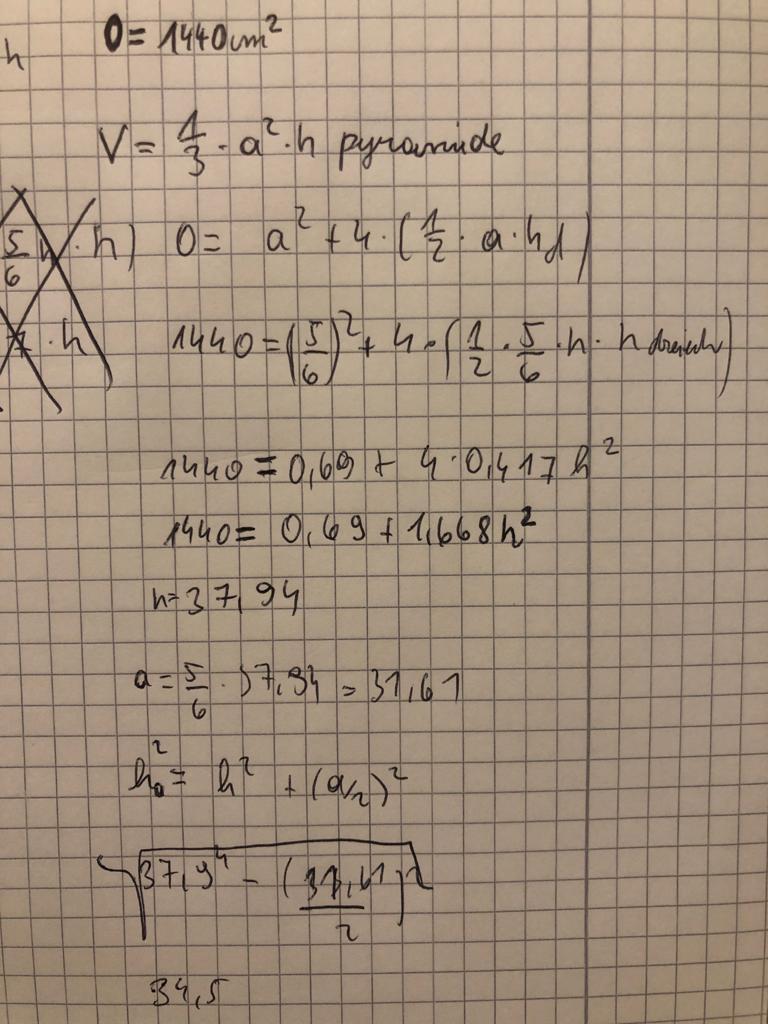 h
O = 1440 cm²
V = 1/3 · a² · h pyramide
5/6 h · h) O = a² + 4 · (1/2 · a · hd)
· h 1440 = (5/6)² + 4 · (1/2 · 5/6 · h · h dreieck)
1440 = 0,69 + 4 · 0,417 h²
1440 = 0,69 + 1,668 h²
h = 37,94
a = 5/6 · 37,94 = 31,61
h² = h² + (a/2)²
√37,94 - (31,61/2)²
34,5